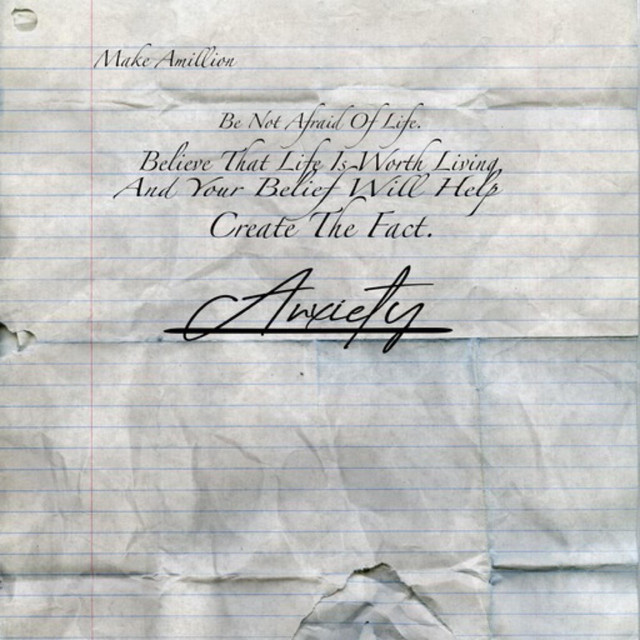 Make Amillion
Be Not Afraid Of Life.
Believe That Life Is Worth Living
And Your Belief Will Help
Create The Fact.
Anxiety